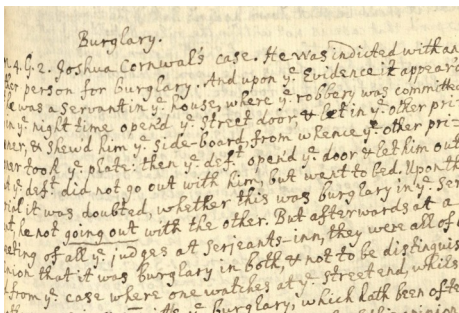 Burglary.
4. G. 2. Joshua Cornwal's case. He was indicted with an
person for burglary. And upon yᵉ Evidence it appear'd
he was a servant in yᵉ house, where yᵉ robbery was committed
in yᵉ night time open'd yᵉ street door & let in yᵉ other pri-
& shew'd him yᵉ side-board, from whence yᵉ other pri-
took yᵉ plate: then yᵉ defᵗ open'd yᵉ door & let him out
yᵉ defᵗ did not go out with him, but went to bed. Upon th
it was doubted, whether this was burglary in yᵉ Ser
he not going out with the other. But afterwards at a
of all yᵉ judges at serjeants-inn, they were all of
that it was burglary in both, & not to be distinguis
from yᵉ case where one watches at yᵉ street end, whils
yᵉ burglary, which hath been ofte